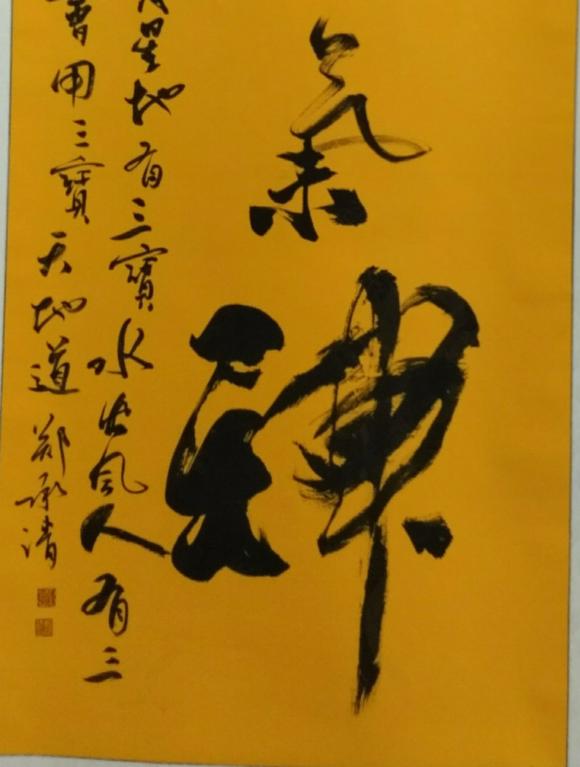 氣神
星地有三寶水火風人有三
會用三寶天地道 鄭承清